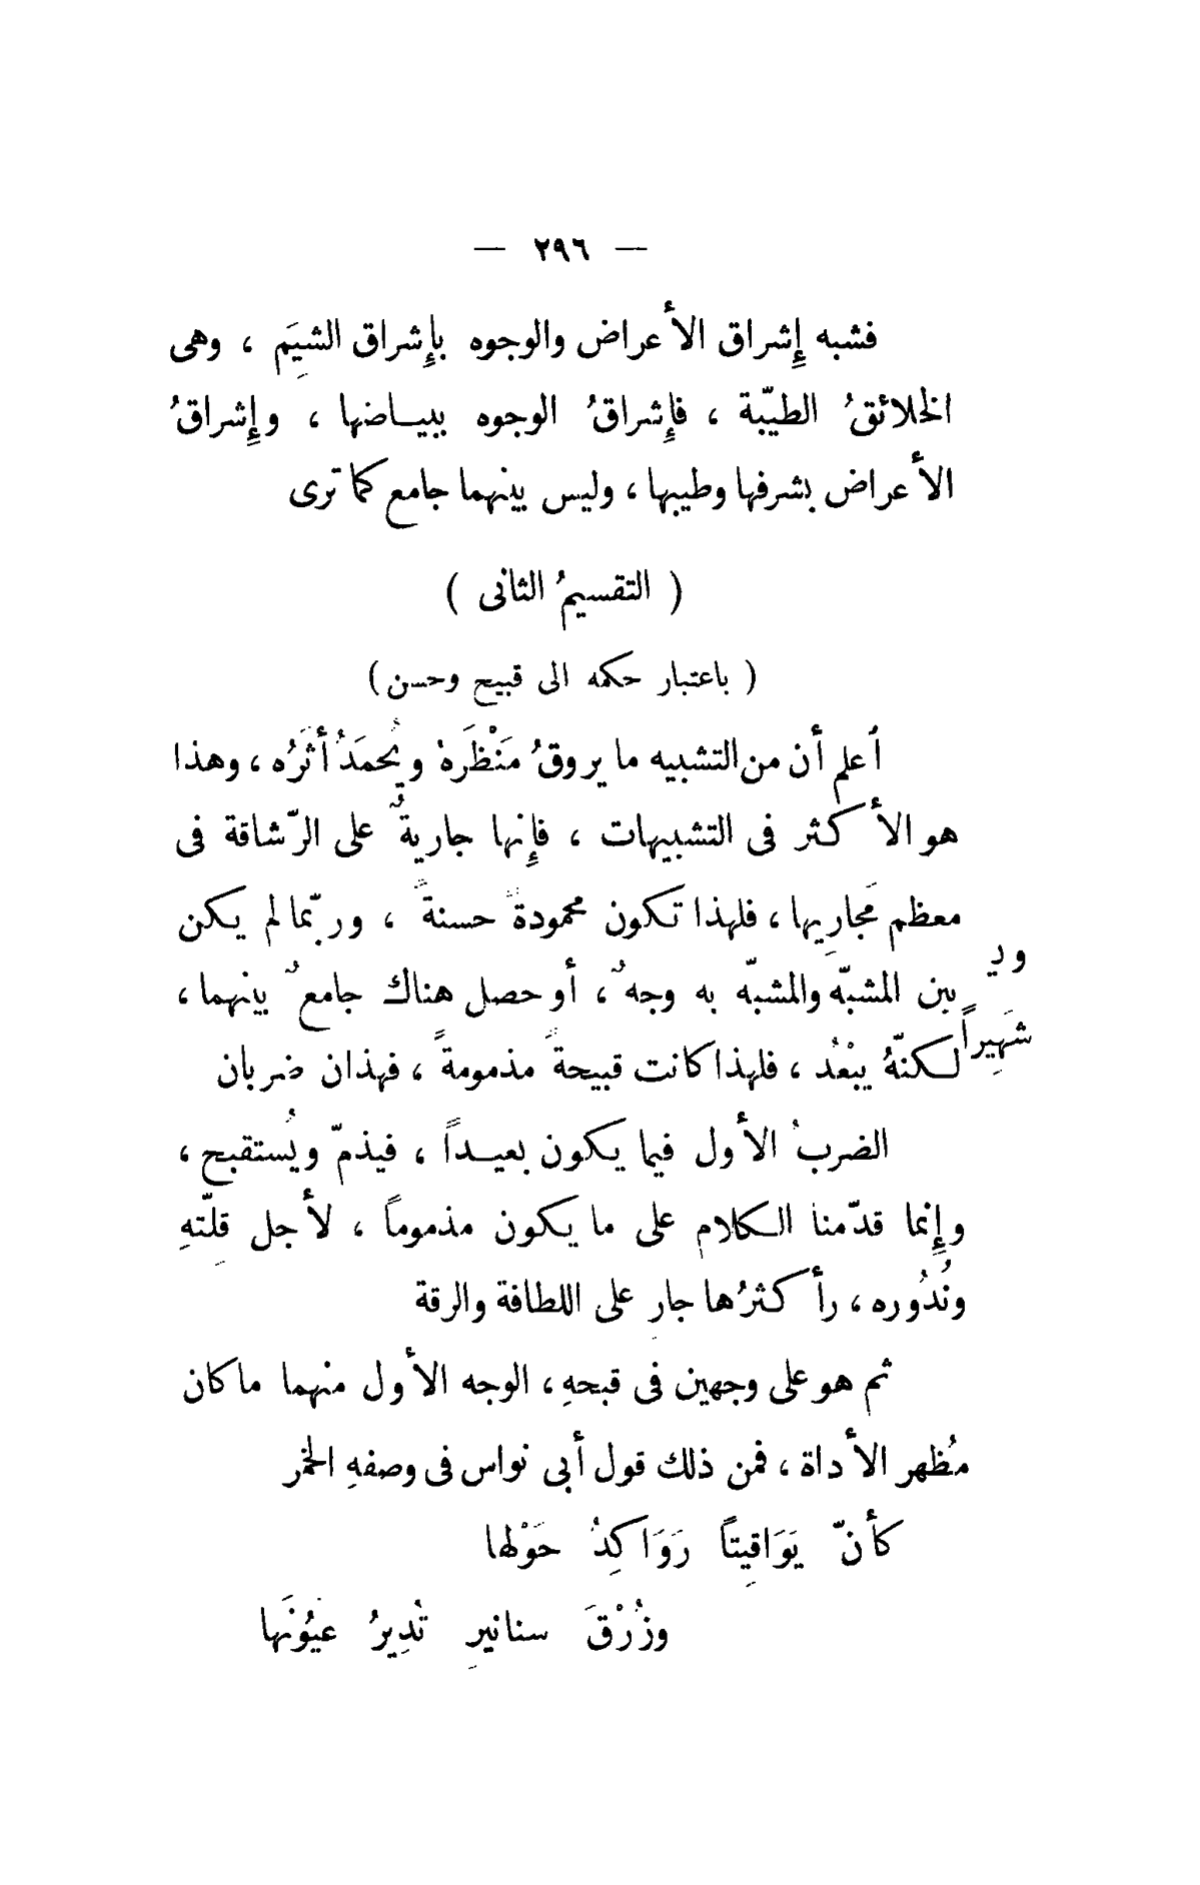 — ٢٩٦ —
فشبه إِشراق الأعراض والوجوه بإِشراق الشيَم ، وهى
الخلائقُ الطيّبة ، فإِشراقُ الوجوه ببيــاضها ، وإِشراقُ
الأعراض بشرفها وطيبها ، وليس بينهما جامع كما ترى
( التقسيمُ الثانى )
( باعتبار حكمه الى قبيح وحسن )
أعلم أن من التشبيه ما يروقُ مَنْظَرهُ ويُحمَدُ أثَرُه ، وهذا
هو الأكثر فى التشبيهات ، فإِنها جاريةٌ على الرّشاقة فى
معظم مَجارِيها ، فلهذا تكون محمودةً حسنةً ، وربّما لم يكن
بين المشبّه والمشبّه به وجهٌ ، أو حصل هناك جامعٌ بينهما ،
لكنّهُ يبْعُد ، فلهذا كانت قبيحةً مذمومةً ، فهذان ضربان
الضربُ الأول فيما يكون بعيــداً ، فيذمّ ويُستقبح ،
وإِنما قدّمنا الكلام على ما يكون مذموماً ، لأجل قلّتهِ
ونُدُوره ، رأكثرُها جارٍ على اللطافة والرقة
ثم هو على وجهين فى قبحهِ ، الوجه الأول منهما ما كان
مُظهر الأداة ، فمن ذلك قول أبى نواس فى وصفهِ الخمر
كأنّ يَوَاقِيتاً رَوَاكِدُ حَوْلها
وزُرْقَ سنانيرِ تُدِيرُ عيُونَها
ود
شَهِيراً